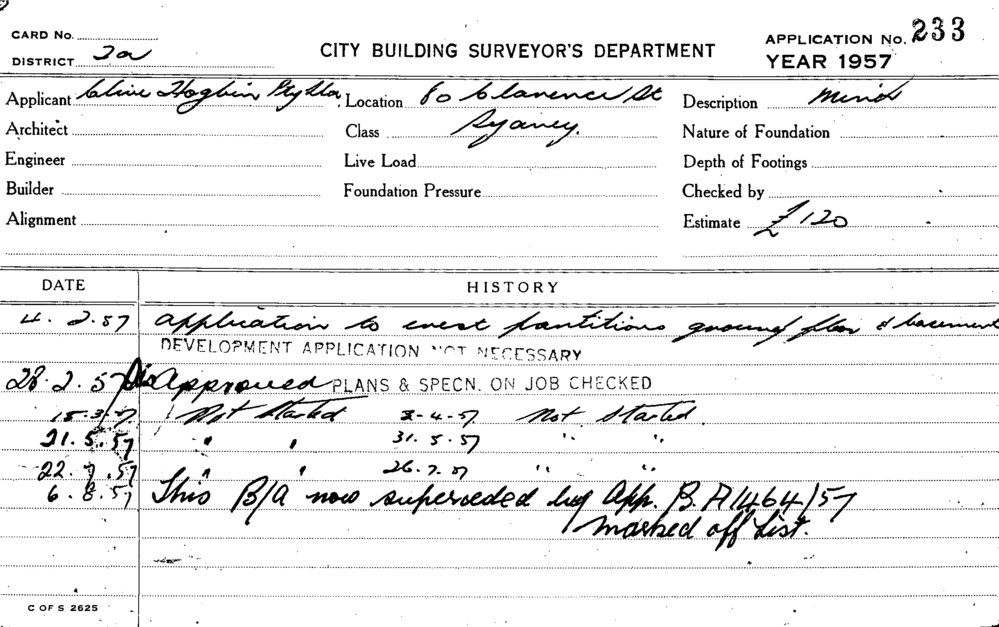 CARD No.
DISTRICT 2a
CITY BUILDING SURVEYOR'S DEPARTMENT
APPLICATION No. 233
YEAR 1957
Applicant Clive Hogbin Location 80 Clarence St Description Minor
Architect Class Sydney. Nature of Foundation
Engineer Live Load Depth of Footings
Builder Foundation Pressure Checked by
Alignment Estimate £120
DATE HISTORY
4. 2. 57 Application to erect partitions ground floor & basement
DEVELOPMENT APPLICATION NOT NECESSARY
28. 2. 57 Approved PLANS & SPECN. ON JOB CHECKED
15-3-57 Not Started 3-4-57 Not Started
21. 5. 57 " " 31. 5. 57 " "
22. 7. 57 " " 26. 7. 57 " "
6. 8. 57 This B/A now superseded by App. B.A 1464/57
Marked off List.
C OF S 2625